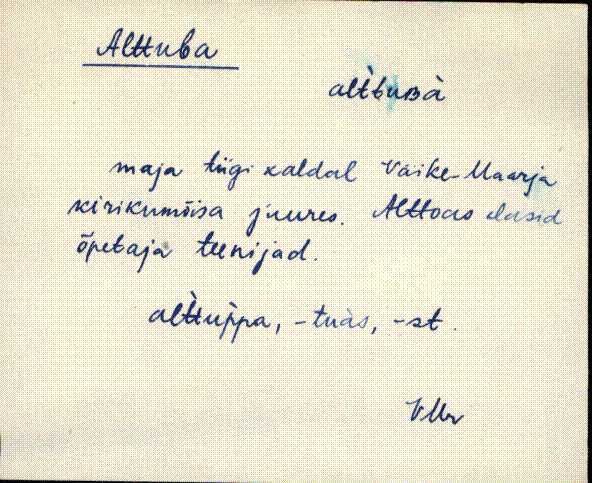 Alttuba
alt̀tuʙà
maja tiigi kaldal Väike-Maarja
kirikumõisa juures. Alttoas elasid
õpetaja teenijad.
alt̀tup̀pa, -tuàs, -st.
VMr